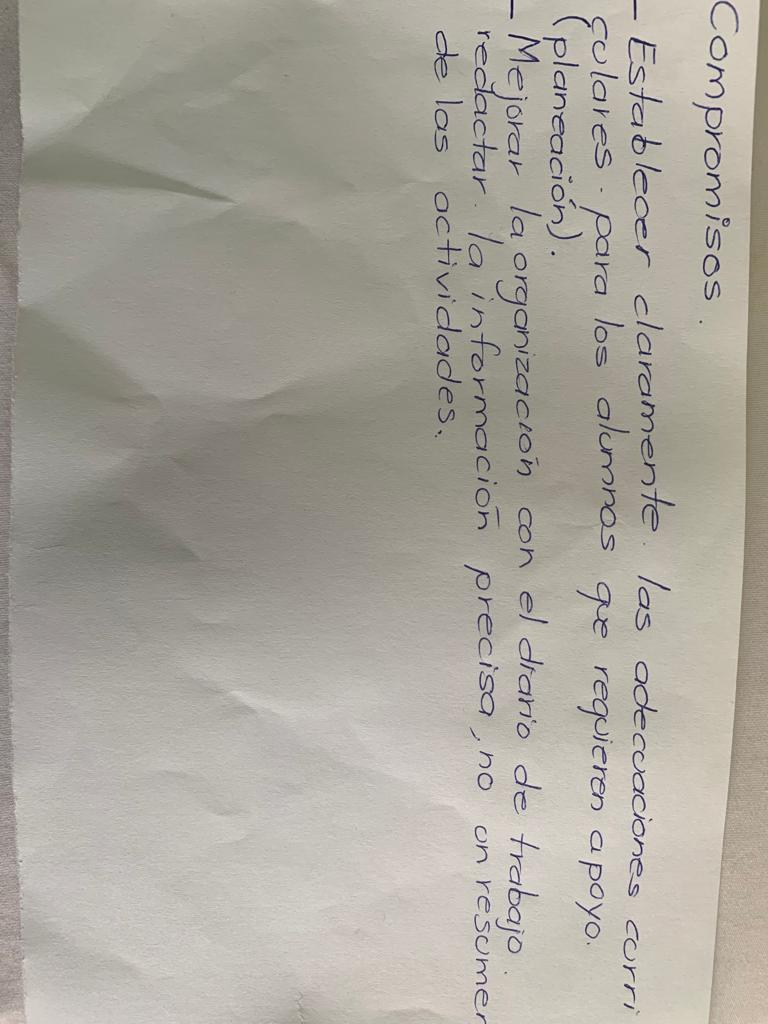 Compromisos.
- Establecer claramente. las adecuaciones curri
culares. para los alumnos que requieren apoyo.
(planeación).
- Mejorar la organización con el diario de trabajo
redactar. la información precisa, no un resumen
de las actividades.